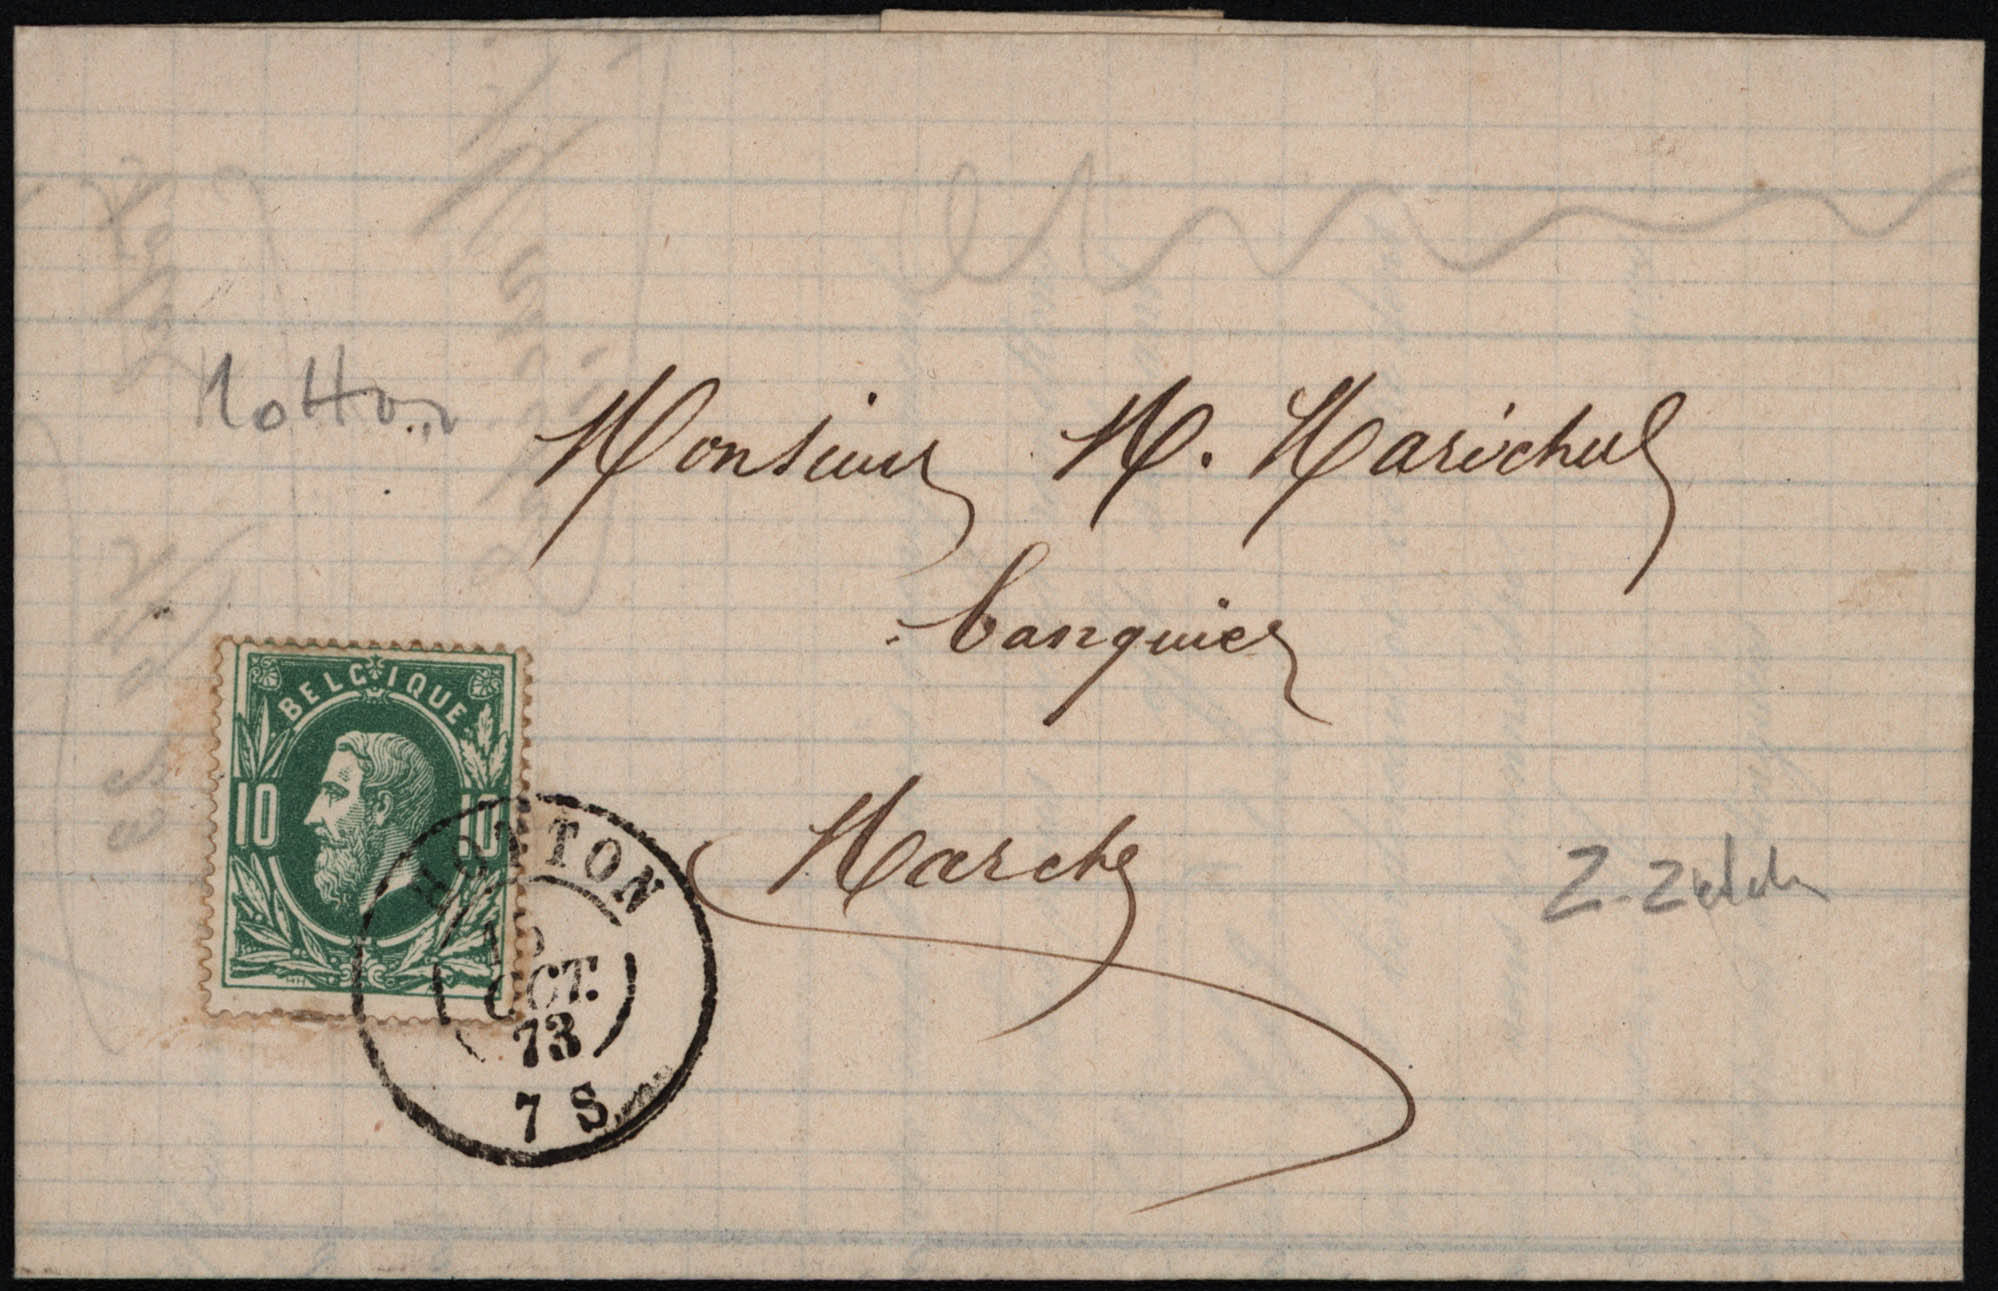 Hotton
Monsieur M. Maréchal
banquier
Marche
BELGIQUE
10 10
HOTTON
OCT.
73
7 S